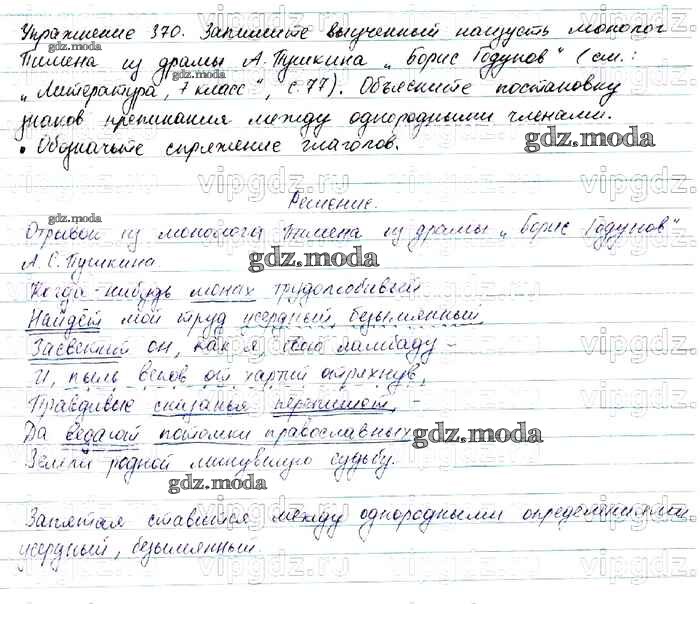 Упражнение 370. Запишите выученный наизусть монолог
gdz.moda
Пимена из драмы А. Пушкина „Борис Годунов" (см.:
„Литература, 7 класс", с. 77). Объясните постановку
знаков препинания между однородными членами.
gdz.moda
• Обозначьте спряжение глаголов.
vipgdz.ru vipgdz.ru vipgdz.ru
Решение.
gdz.moda
Отрывок из монолога Пимена из драмы „Борис Годунов"
А. С. Пушкина
gdz.moda
Когда-нибудь монах трудолюбивый
Найдёт мой труд усердный, безымянный,
Засветит он, как я свою лампаду –
И, пыль веков от хартий отряхнув,
Правдивые сказанья перепишет, –
Да ведают потомки православных
gdz.moda
Земли родной минувшую судьбу.
gdz.moda
Запятая ставится между однородными определениями
усердный, безымянный.
vipgdz.ru vipgdz.ru vipgdz.ru